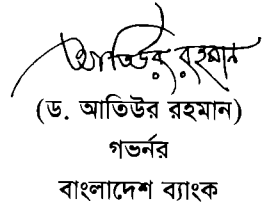 আতিউর রহমান
(ড. আতিউর রহমান)
গভর্নর
বাংলাদেশ ব্যাংক